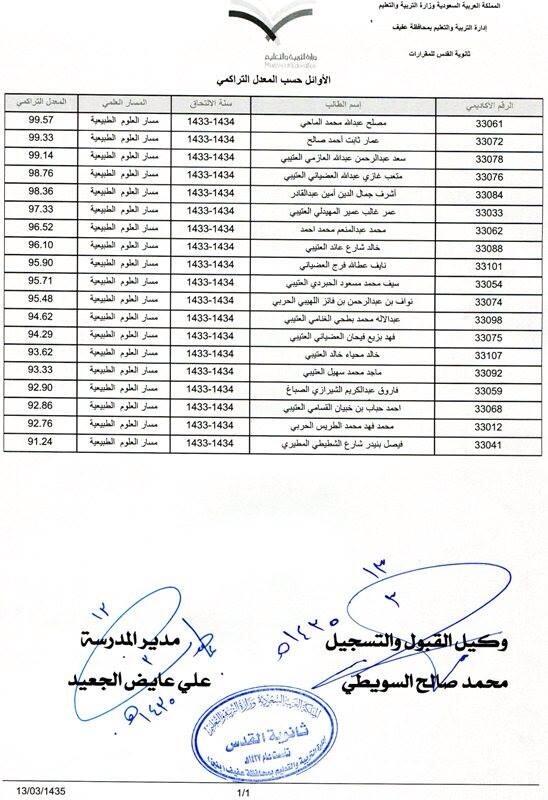 المملكة العربية السعودية وزارة التربية والتعليم
إدارة التربية والتعليم بمحافظة عفيف
ثانوية القدس للمقررات
وزارة التربية والتعليم
Ministry of Education
الأوائل حسب المعدل التراكمي
الرقم الاكاديمي إسم الطالب سنة الالتحاق المسار العلمي المعدل التراكمي
33061 مصلح عبدالله محمد الماحي 1433-1434 مسار العلوم الطبيعية 99.57
33072 عمار ثابت أحمد صالح 1433-1434 مسار العلوم الطبيعية 99.33
33078 سعد عبدالرحمن عبدالله العازمي العتيبي 1433-1434 مسار العلوم الطبيعية 99.14
33076 متعب غازي عبدالله العضياني العتيبي 1433-1434 مسار العلوم الطبيعية 98.76
33084 أشرف جمال الدين أمين عبدالقادر 1433-1434 مسار العلوم الطبيعية 98.36
33033 عمر غالب عمير المهيدلي العتيبي 1433-1434 مسار العلوم الطبيعية 97.33
33062 محمد عبدالمنعم محمد احمد 1433-1434 مسار العلوم الطبيعية 96.52
33088 خالد شارع عائد العتيبي 1433-1434 مسار العلوم الطبيعية 96.10
33101 نايف عطالله فرج العضياني 1433-1434 مسار العلوم الطبيعية 95.90
33054 سيف محمد مسعود الحبردي العتيبي 1433-1434 مسار العلوم الطبيعية 95.71
33074 نواف بن عبدالرحمن بن فائز اللهيبي الحربي 1433-1434 مسار العلوم الطبيعية 95.48
33098 عبدالاله محمد بطحي الغنامي العتيبي 1433-1434 مسار العلوم الطبيعية 94.62
33075 فهد بزيع فيحان العضياني العتيبي 1433-1434 مسار العلوم الطبيعية 94.29
33107 خالد محياء خالد العتيبي 1433-1434 مسار العلوم الطبيعية 93.62
33092 ماجد محمد سهيل العتيبي 1433-1434 مسار العلوم الطبيعية 93.33
33059 فاروق عبدالكريم الشيرازي الصباغ 1433-1434 مسار العلوم الطبيعية 92.90
33068 احمد حباب بن خبيان القسامي العتيبي 1433-1434 مسار العلوم الطبيعية 92.86
33012 محمد فهد محمد الطريس الحربي 1433-1434 مسار العلوم الطبيعية 92.76
33041 فيصل بنيدر شارع الشطيطي المطيري 1433-1434 مسار العلوم الطبيعية 91.24
١٣
٣
١٤٣٥هـ
وكيل القبول والتسجيل
محمد صالح السويطي
١٢
٣
١٤٣٥هـ
مدير المدرسة
علي عايض الجعيد
المملكة العربية السعودية وزارة التربية والتعليم
ثانوية القدس
إدارة التربية والتعليم بمحافظة عفيف
13/03/1435
1/1